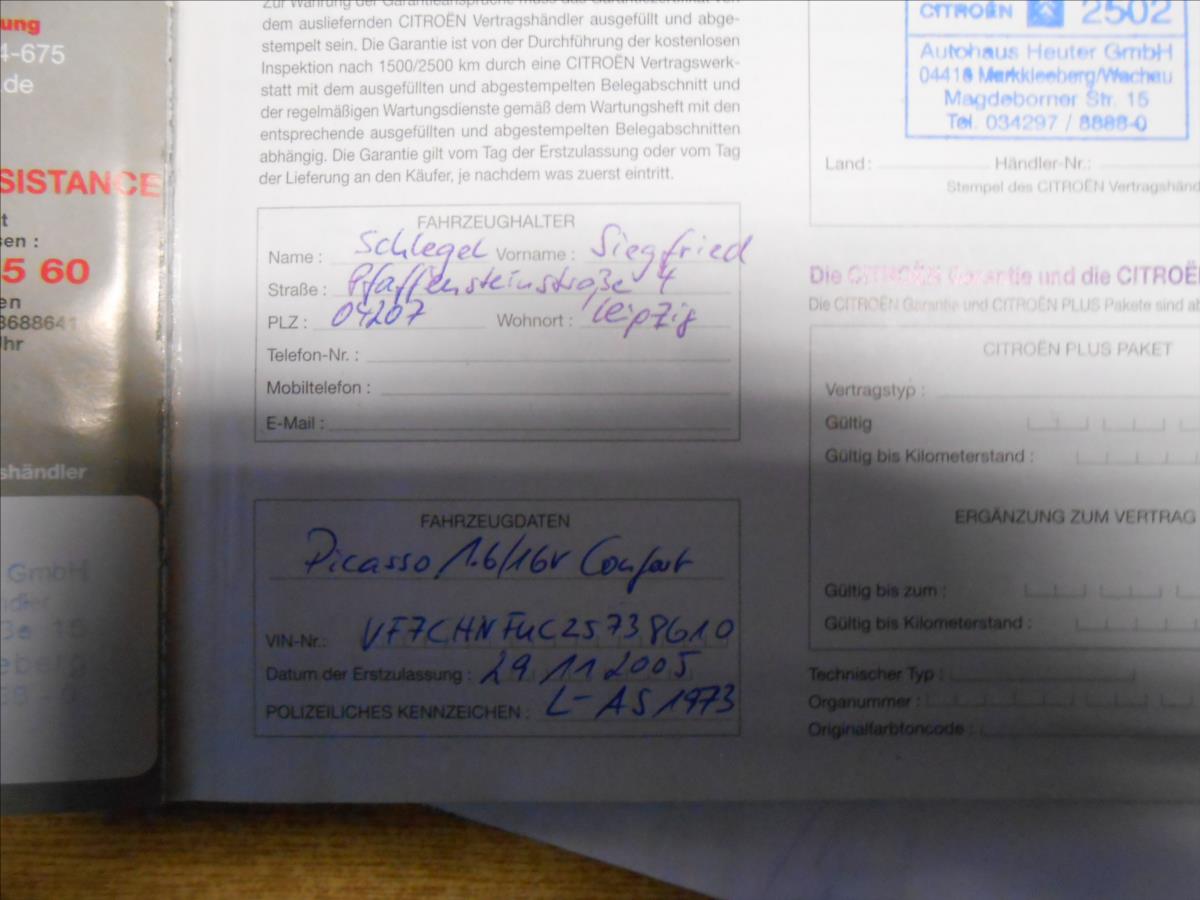 ung
4-675
.de
SISTANCE
t
sen :
5 60
en
3688641
hr
shändler
GmbH
Zur Wahrung der Garantieansprüche muss das Garantiezertifikat von
dem ausliefernden CITROËN Vertragshändler ausgefüllt und abge-
stempelt sein. Die Garantie ist von der Durchführung der kostenlosen
Inspektion nach 1500/2500 km durch eine CITROËN Vertragswerk-
statt mit dem ausgefüllten und abgestempelten Belegabschnitt und
der regelmäßigen Wartungsdienste gemäß dem Wartungsheft mit den
entsprechende ausgefüllten und abgestempelten Belegabschnitten
abhängig. Die Garantie gilt vom Tag der Erstzulassung oder vom Tag
der Lieferung an den Käufer, je nachdem was zuerst eintritt.
FAHRZEUGHALTER
Name : Schlegel Vorname : Siegfried
Straße : Pfaffensteinstraße 4
PLZ : 04207 Wohnort : Leipzig
Telefon-Nr. :
Mobiltelefon :
E-Mail :
FAHRZEUGDATEN
Picasso 1.6/16v Comfort
VIN-Nr.: VF7CHNFUC25738610
Datum der Erstzulassung : 29.11.2005
POLIZEILICHES KENNZEICHEN : L-AS1973
CITROËN 2502
Autohaus Heuter GmbH
04416 Markkleeberg/Wachau
Magdeborner Str. 15
Tel. 034297 / 8888-0
Land : Händler-Nr.:
Stempel des CITROËN Vertragshänd
Die CITROËN Garantie und die CITROË
Die CITROËN Garantie und CITROËN PLUS Pakete sind a
CITROËN PLUS PAKET
Vertragstyp :
Gültig
Gültig bis Kilometerstand :
ERGÄNZUNG ZUM VERTRAG
Gültig bis zum :
Gültig bis Kilometerstand :
Technischer Typ :
Organummer :
Originalfarbtoncode :